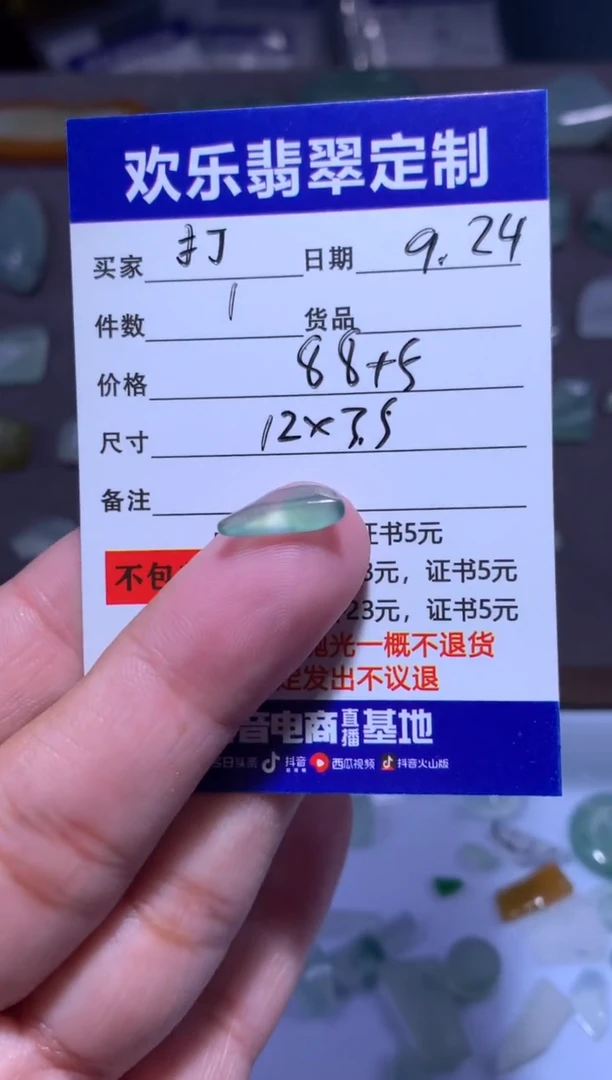 欢乐翡翠定制
买家 打 日期 9.24
件数 1 货品
价格 88+5
尺寸 12×3.5
备注
证书5元
不包 3元，证书5元
23元，证书5元
抛光一概不退货
定发出不议退
音电商直播基地
今日头条 抖音 西瓜视频 抖音火山版